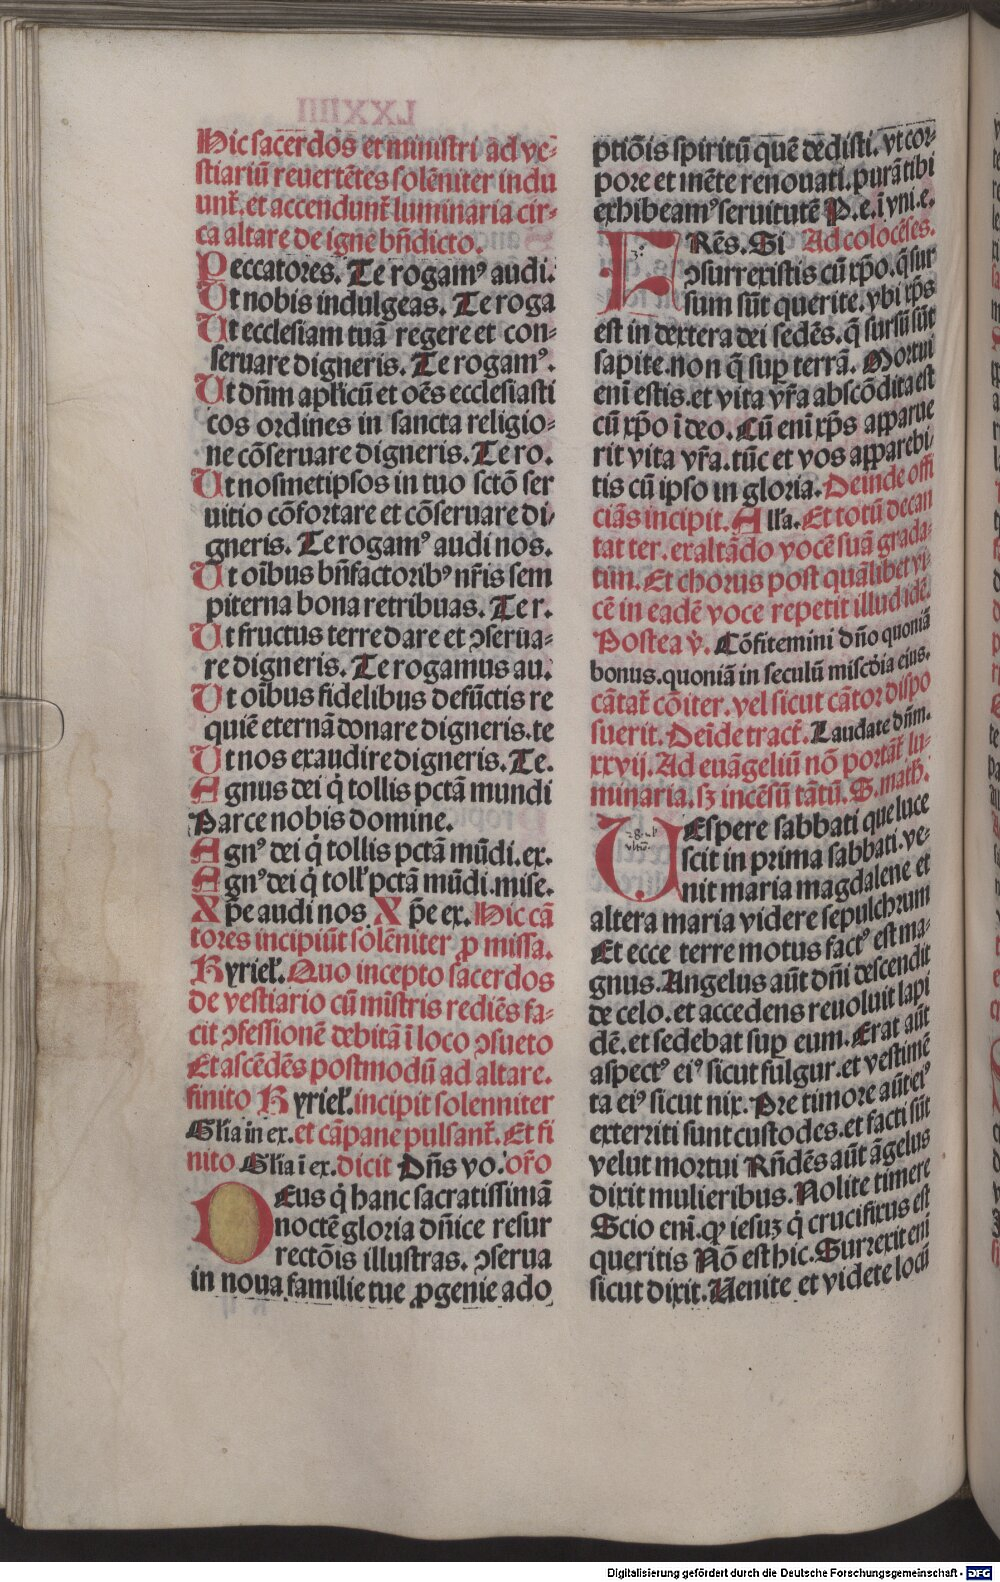 Hic sacerdos et ministri ad ve-
stiariū reuertētes solēniter indu
unt᷑. et accendunt᷑ luminaria cir-
ca altare de igne bn̄dicto.
Peccatores. Te rogamꝰ audi.
Ut nobis indulgeas. Te roga
Ut ecclesiam tuā regere et con-
seruare digneris. Te rogamꝰ.
Ut dn̄m apl̄icū et oēs ecclesiasti
cos ordines in sancta religio-
ne cōseruare digneris. Te ro.
Ut nosmetipsos in tuo sctō ser
uitio cōfortare et cōseruare di-
gneris. Te rogamꝰ audi nos.
Ut oībus bn̄factoribꝰ nr̄is sem
piterna bona retribuas. Te r.
Ut fructus terre dare et ꝯserua-
re digneris. Te rogamus au.
Ut oībus fidelibus defūctis re
quiē eternā donare digneris. te
Ut nos exaudire digneris. Te.
Agnus dei q̇ tollis pctā mundi
Parce nobis domine.
Agnꝰ dei q̇ tollis pctā mūdi. ex.
Agnꝰ dei q̇ toll᷑ pctā mūdi. mise.
Xp̄e audi nos Xp̄e ex. Hic cā
tores incipiūt solēniter ꝓ missa.
Kyriel᷑. Quo incepto sacerdos
de vestiario cū mīstris rediēs fa-
cit ꝯfessionē debitā ī loco ꝯsueto
Et ascēdēs postmodū ad altare.
finito Kyriel᷑. incipit solenniter
Gl̄ia in ex. et cāpane pulsant᷑. Et fi
nito Gl̄ia ī ex. dicit Dn̄s vo. or̄o
DEus q̇ hanc sacratissimā
noctē gloria dn̄ice resur
rectōis illustras. ꝯserua
in noua familie tue ꝓgenie ado
ptiōis spiritū quē dedisti. vt cor-
pore et mēte renouati. purā tibi
exhibeamꝰ seruitutē P. e. ī vni. e.
FRēs. Si Ad colocēses.
ꝯsurrexistis cū xp̄o. q̄ sur
sum sūt querite. vbi xp̄s
est in dextera dei sedēs. q̄ sursū sūt
sapite. non q̄ suꝑ terrā. Mortui
enī estis. et vita vr̄a abscōdita est
cū xp̄o ī deo. Cū enī xp̄s apparue
rit vita vr̄a. tūc et vos apparebi-
tis cū ipso in gloria. Deinde offi
ciās incipit. All᷑a. Et totū decan
tat ter. exaltādo vocē suā grada-
tim. Et chorus post quālibet vi-
cē in eadē voce repetit illud idē.
Postea v̄. Cōfitemini dn̄o quoniā
bonus. quoniā in seculū misc̄dia eius.
cātat᷑ cōiter. vel sicut cātor dispo
suerit. Deīde tract᷑. Laudate dn̄m.
xxvij. Ad euāgeliū nō portāt᷑ lu-
minaria. sꝫ incēsū tātū. S. math᷑.
UEspere sabbati que luce
scit in prima sabbati. ve-
nit maria magdalene et
altera maria videre sepulchrum
Et ecce terre motus factꝰ est ma-
gnus. Angelus aūt dn̄i descendit
de celo. et accedens reuoluit lapi
dē. et sedebat suꝑ eum. Erat aūt
aspectꝰ eiꝰ sicut fulgur. et vestimē
ta eiꝰ sicut nix. Pre timore aūt eiꝰ
exterriti sunt custodes. et facti sūt
velut mortui Rn̄dēs aūt āgelus
dixit mulieribus. Nolite timere
Scio enī. ꝙ iesuꝫ q̇ crucifixus est
queritis Nō est hic. Surrexit enī
sicut dixit. Uenite et videte locū
Digitalisierung gefördert durch die Deutsche Forschungsgemeinschaft - DFG